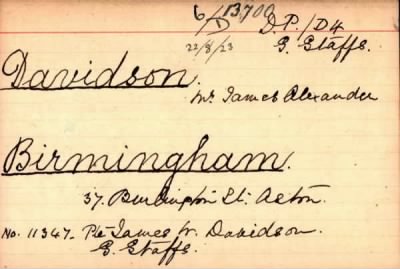 6/D/13,700 D.P./D4
22/8/23 G. Staffs.
Davidson.
Mr. James Alexander
Birmingham.
37. Burlington St: Aston.
No. 11347. Pte James W. Davidson.
G. Staffs.